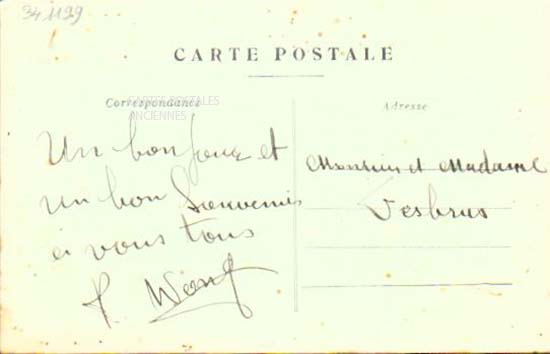 341199
CARTE POSTALE
Correspondance
CARTES POSTALES
ANCIENNES
Adresse
Un bonjour et
un bon Souvenir
à vous tous
Monsieur et Madame